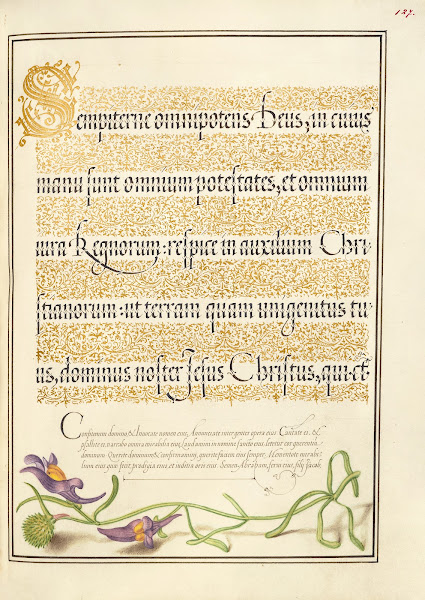 127.
Sempiterne omnipotens Deus, in cuius
manu sunt omnium potestates, et omnium
iura Regnorum: respice in auxilium Chri-
stianorum: ut terram quam unigenitus tu-
us, dominus noster Jesus Christus, qui est
Confitemini domino & Invocate nomen eius, Annunciate inter gentes opera eius Cantate ei, &
psallite ei, narrate omnia mirabilia eius, Laudamini in nomine sancto eius, letetur cor querentiū
dominum Querite dominum & confirmamini, querite faciem eius semper, Mementote mirabi-
lium eius quae fecit, prodigia eius et iuditia oris eius Semen Abraham, servi eius, filij Iacob,